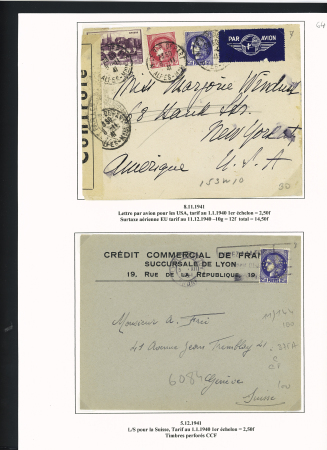 64
PAR AVION
Contrôle
Miss Marjorie
68 Bank Str.
New York
Amérique U.S.A
153 m 10
30
8.11.1941
Lettre par avion pour les USA, tarif au 1.1.1940 1er échelon = 2,50f
Surtaxe aérienne EU tarif au 11.12.1940 -10g = 12f total = 14,50f
CRÉDIT COMMERCIAL DE FRAN
SUCCURSALE DE LYON
19, RUE DE LA RÉPUBLIQUE, 19
Monsieur A.
49 Avenue Jean Tremblay 41
Genève
Suisse
100
5.12.1941
L/S pour la Suisse, Tarif au 1.1.1940 1er échelon = 2,50f
Timbres perforés CCF